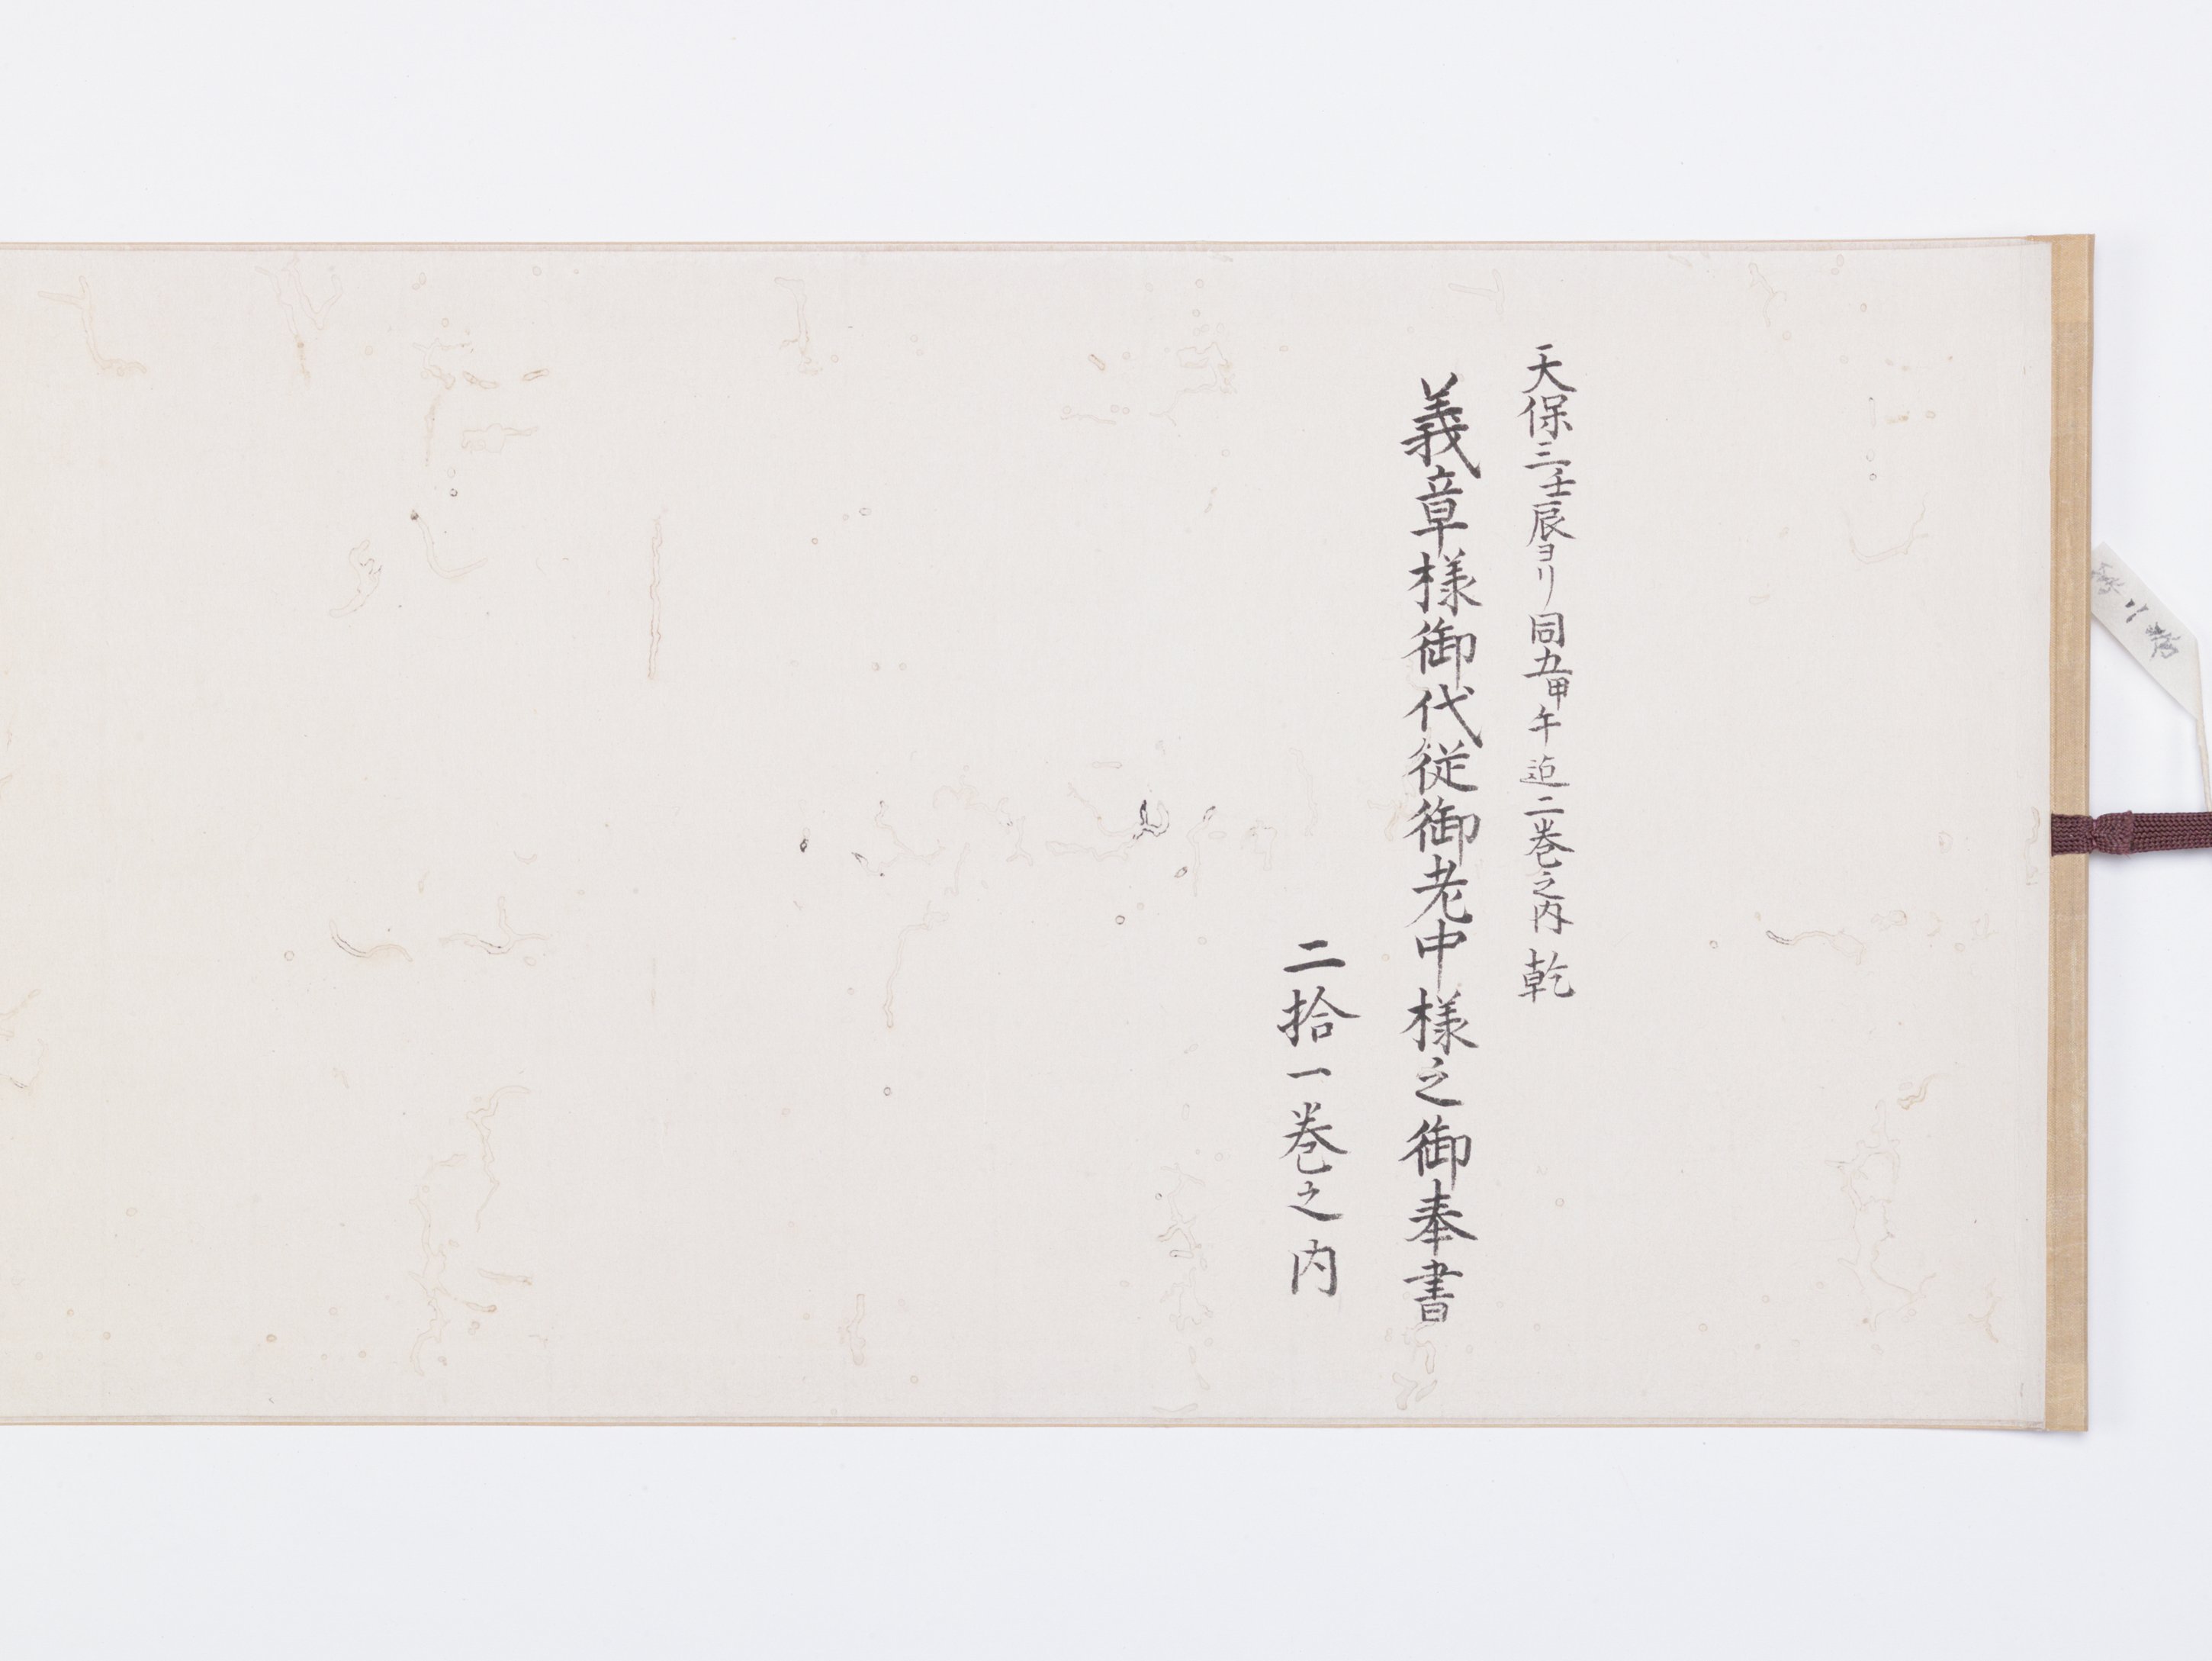 天保三壬辰ヨリ同五甲午迠二巻之内 乾
義章様御代従御老中様之御奉書
二拾一巻之内